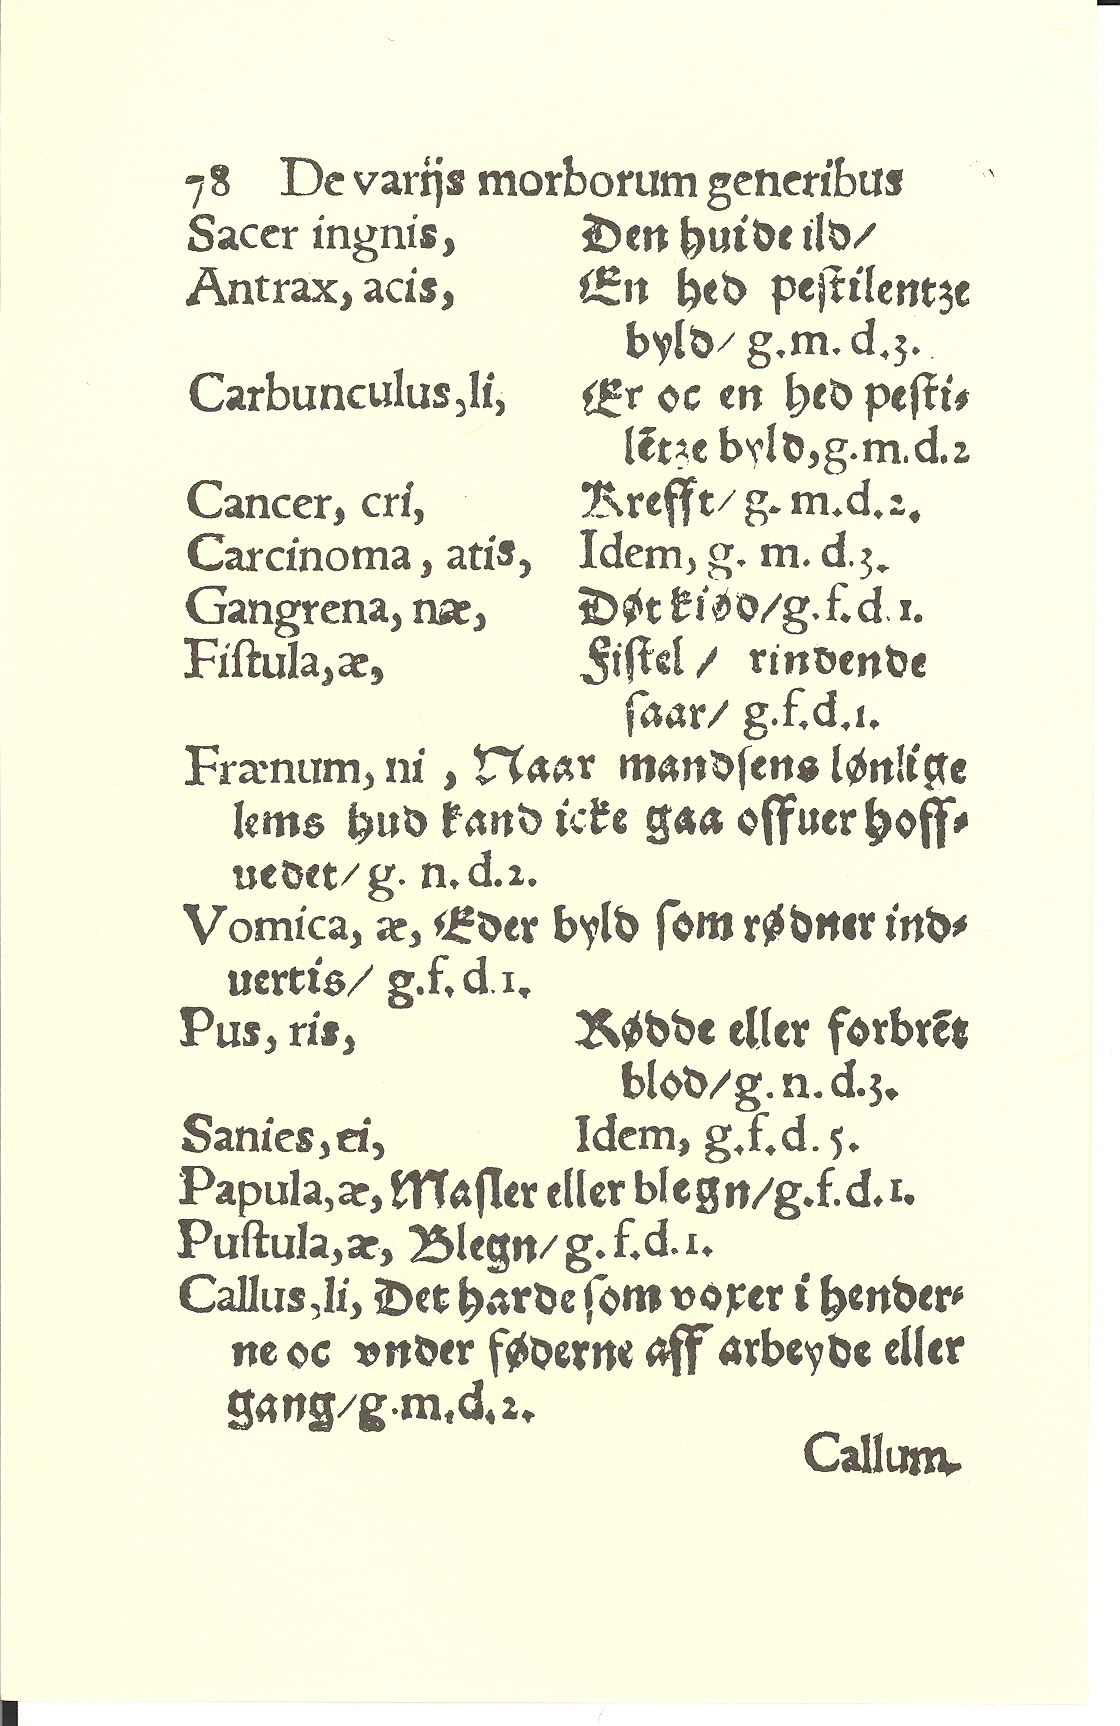 78 De varijs morborum generibus
Sacer ingnis, Den huide ild/
Antrax, acis, En hed pestilentze
byld/ g.m.d.3.
Carbunculus, li, Er oc en hed pesti⸗
lētze byld, g.m.d.2
Cancer, cri, Krefft/ g.m.d.2.
Carcinoma, atis, Idem, g. m. d.3.
Gangrena, næ, Døt kiød/g.f.d.1.
Fiſtula, æ, Fiſtel / rindende
ſaar/ g.f.d.1.
Frænum, ni, Naar mandſens lønlige
lems hud kand icke gaa offuer hoff⸗
uedet/ g. n. d.2.
Vomica, æ, Eder byld ſom rødner ind⸗
uertis/ g.f.d.1.
Pus, ris, Rødde eller forbrēt
blod/g.n.d.3.
Sanies, ei, Idem, g.f.d.5.
Papula, æ, Maſler eller blegn/g.f.d.1.
Puſtula, æ, Blegn/ g.f.d.1.
Callus, li, Det harde ſom voxer i hender⸗
ne oc vnder føderne aff arbeyde eller
gang/g.m.d.2.
Callum.